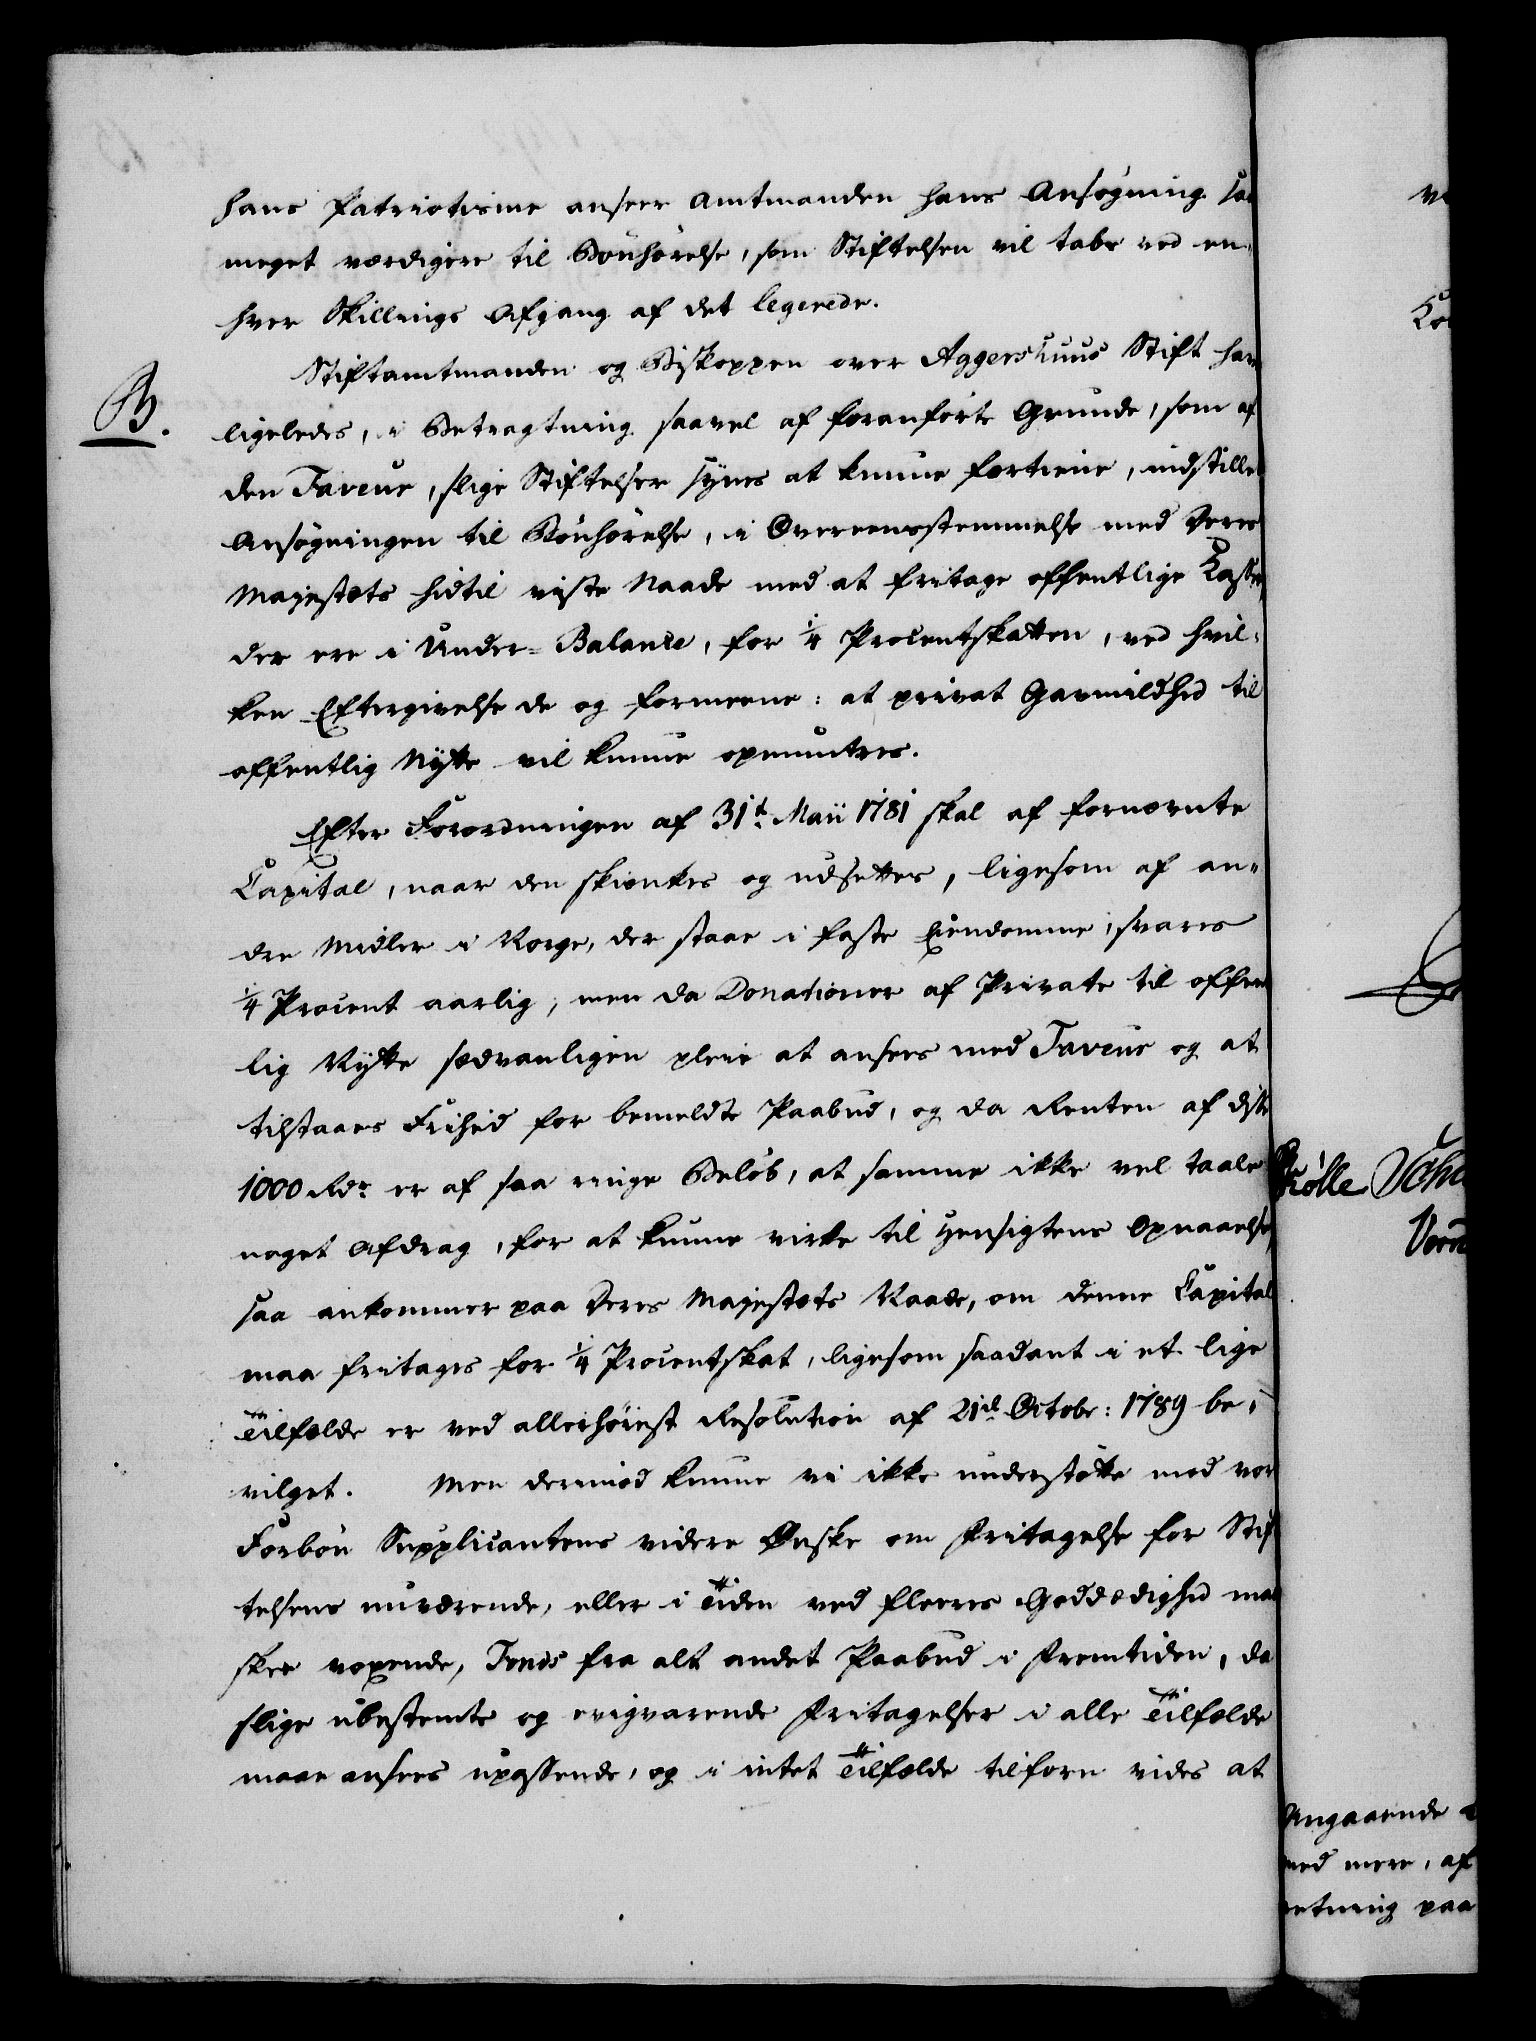 hans Patriotisme anseer Amtmanden hans Ansøgning saa
meget værdigere til Bønhørelse, som Stiftelsen vil tabe ved en-
hver Skillings Afgang af det legerede.
Stiftamtmanden og Biskoppen over Aggershuus Stift har
B.
ligeledes, i Betragtning saavel af foranførte Grunde, som af
den Faveur, slige Stiftelser synes at kunne fortiene, indstillet
Ansøgningen til Bønhørelse, i Overeensstemmelse med Deres
Majestæts hidtil viste Naade med at fritage offentlige Casser,
der ere i Under-Balance, for 1/4 Procentskatten, ved hvil-
ken Eftergivelse de og formeene: at privat Gavmildhed til
offentlig Nytte vil kunne opmuntres.
Efter Forordningen af 31t. Maii 1781 skal af fornævnte
Capital, naar den skienkes og udsettes, ligesom af an-
dre Midler i Norge, der staae i faste Eiendomme, svares
1/4 Procent aarlig; men da Donationer af Private til offent
lig Nytte sædvanligen pleie at ansees med Faveur og at
tilstaaes Frihed for bemeldte Paabud, og da Renten af disse
1000 Rdr. er af saa ringe Beløb, at samme ikke vel taaler
noget Afdrag, for at kunne virke til Hensigtens Opnaaelse,
saa ankommer paa Deres Majestæts Naade, om denne Capital
maa fritages for 1/4 Procentskat, ligesom saadant i et lige
Tilfælde er ved allerhøiest Resolution af 21d. Octobr: 1789 be-
vilget. Men derimod kunne vi ikke understøtte med vor
Forbøn Supplicantens videre Ønske om Fritagelse for Stif
telsens nuværende, eller i Tiden ved fleeres Goddædighed maa
skee voxende, Fonds fra alt andet Paabud i Fremtiden, da
slige ubestemte og evigvarende Fritagelser i alle Tilfælde
maae ansees upassende, og i intet Tilfælde tilforn vides at
Angaaende
med mere, af
retning paa